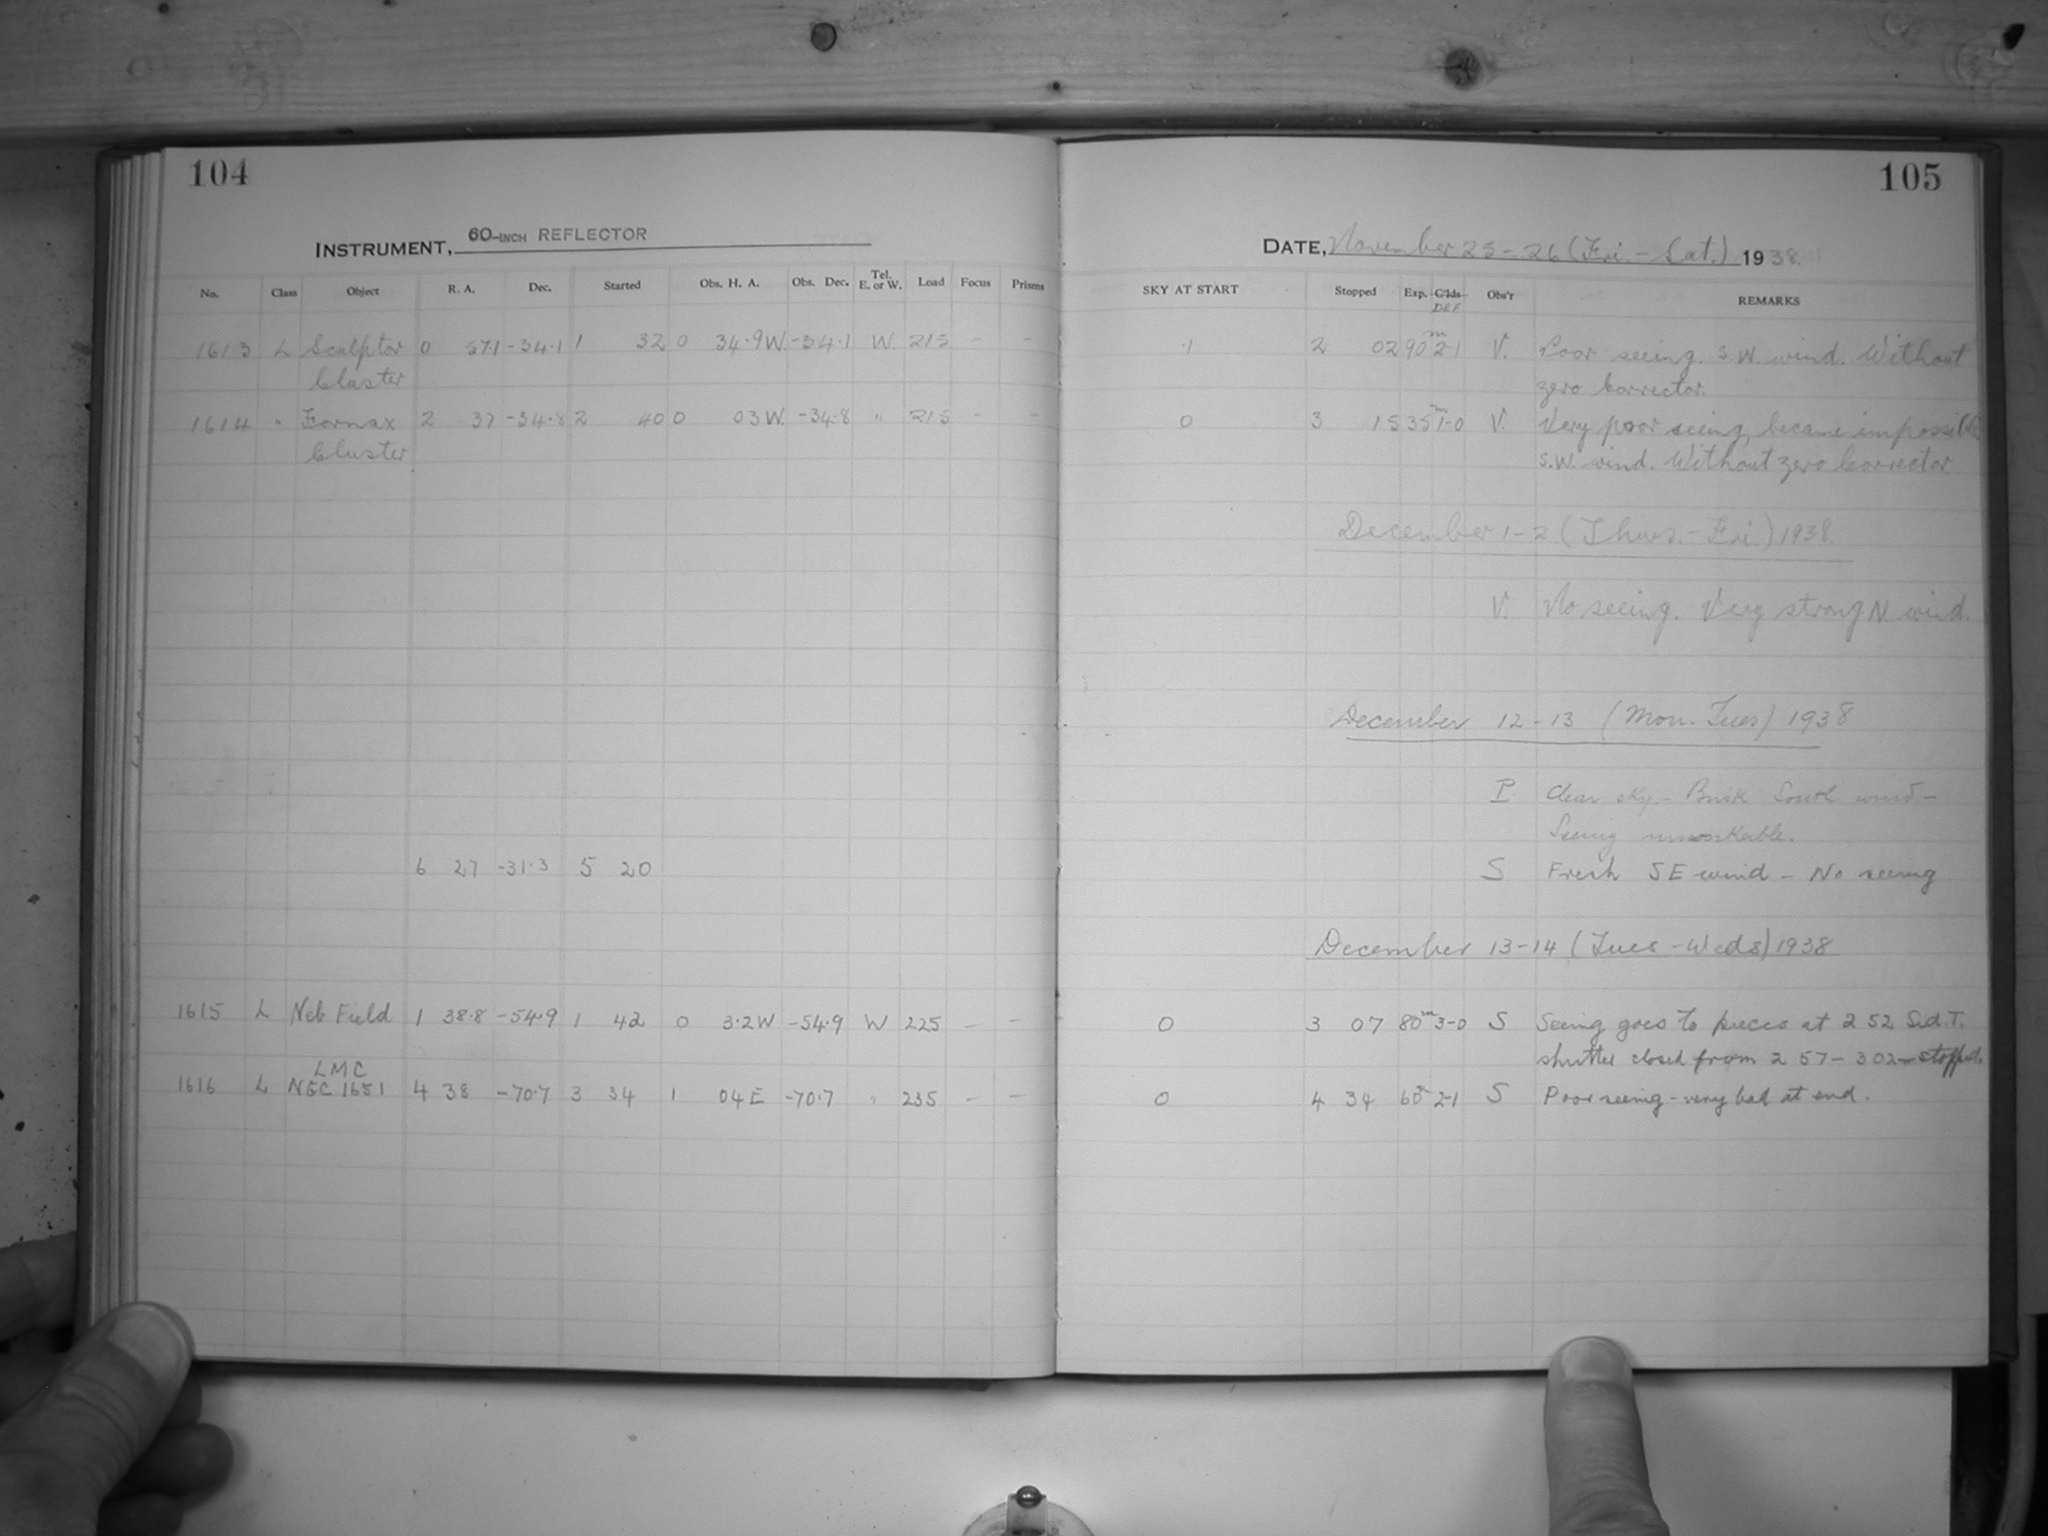 104
INSTRUMENT, 60-INCH REFLECTOR
No. Class Object R. A. Dec. Started Obs. H. A. Obs. Dec. Tel. E. or W. Load Focus Prisms
1613 L Sculptor 0 57.1 -34.1 1 32 0 34.9W. -34.1 W. 215 - -
Cluster
1614 " Fornax 2 37 -34.8 2 40 0 03W. -34.8 " 215 - -
Cluster
6 27 -31.3 5 20
1615 L Neb Field 1 38.8 -54.9 1 42 0 3.2W -54.9 W 225 - -
LMC
1616 L NGC 1651 4 38 -70.7 3 34 1 04E -70.7 " 235 - -
105
DATE, November 25-26 (Fri.-Sat.) 1938.
SKY AT START Stopped Exp. Clds Obs'r REMARKS
DEF
.1 2 02 90m 2-1 V. Poor seeing. S.W. wind. Without
zero Corrector.
0 3 15 35m 1-0 V. Very poor seeing, became impossible
S.W. wind. Without zero Corrector
December 1-2 (Thurs.-Fri.) 1938.
V. No seeing. Very strong N. wind.
December 12-13 (Mon. Tues) 1938
P Clear sky.- Brisk South wind.-
Seeing unworkable.
S Fresh SE wind - No seeing
December 13-14 (Tues-Weds) 1938
0 3 07 80m 3-0 S Seeing goes to pieces at 2 52 Sid.T.
shutter closed from 2 57 - 3 02 - stopped.
0 4 34 60m 2-1 S Poor seeing - very bad at end.